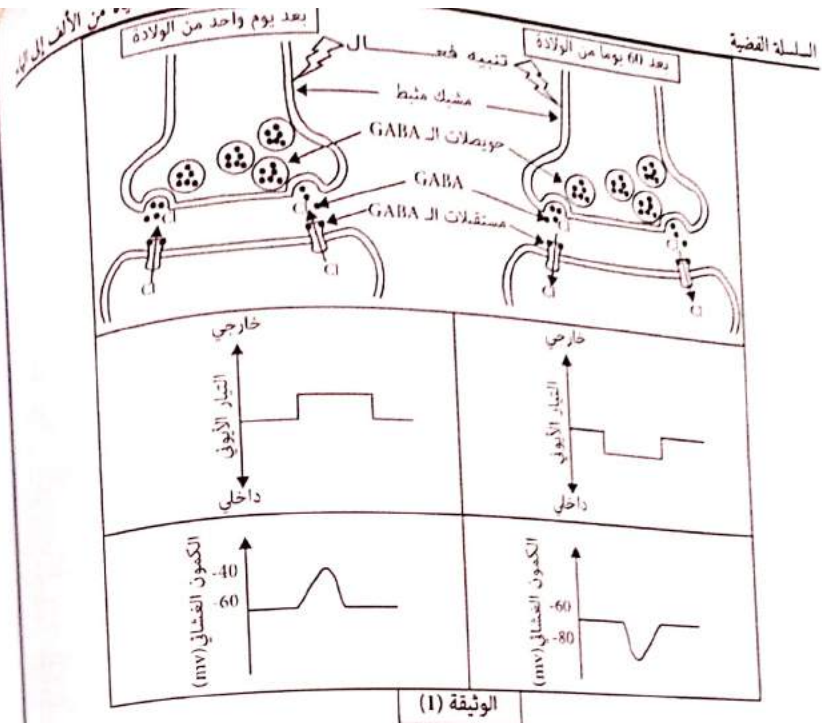 السلسلة الفضية
من الألف إلى
بعد 60 يوما من الولادة
بعد يوم واحد من الولادة
تنبيه فعـــــال
مشبك مثبط
حويصلات الـ GABA
GABA
مستقبلات الـ GABA
Cl
Cl
Cl
Cl
Cl
Cl
خارجي
التيار الأيوني
داخلي
خارجي
التيار الأيوني
داخلي
الكمون الغشائي (mv)
-60
-80
الكمون الغشائي (mv)
-40
-60
الوثيقة (1)